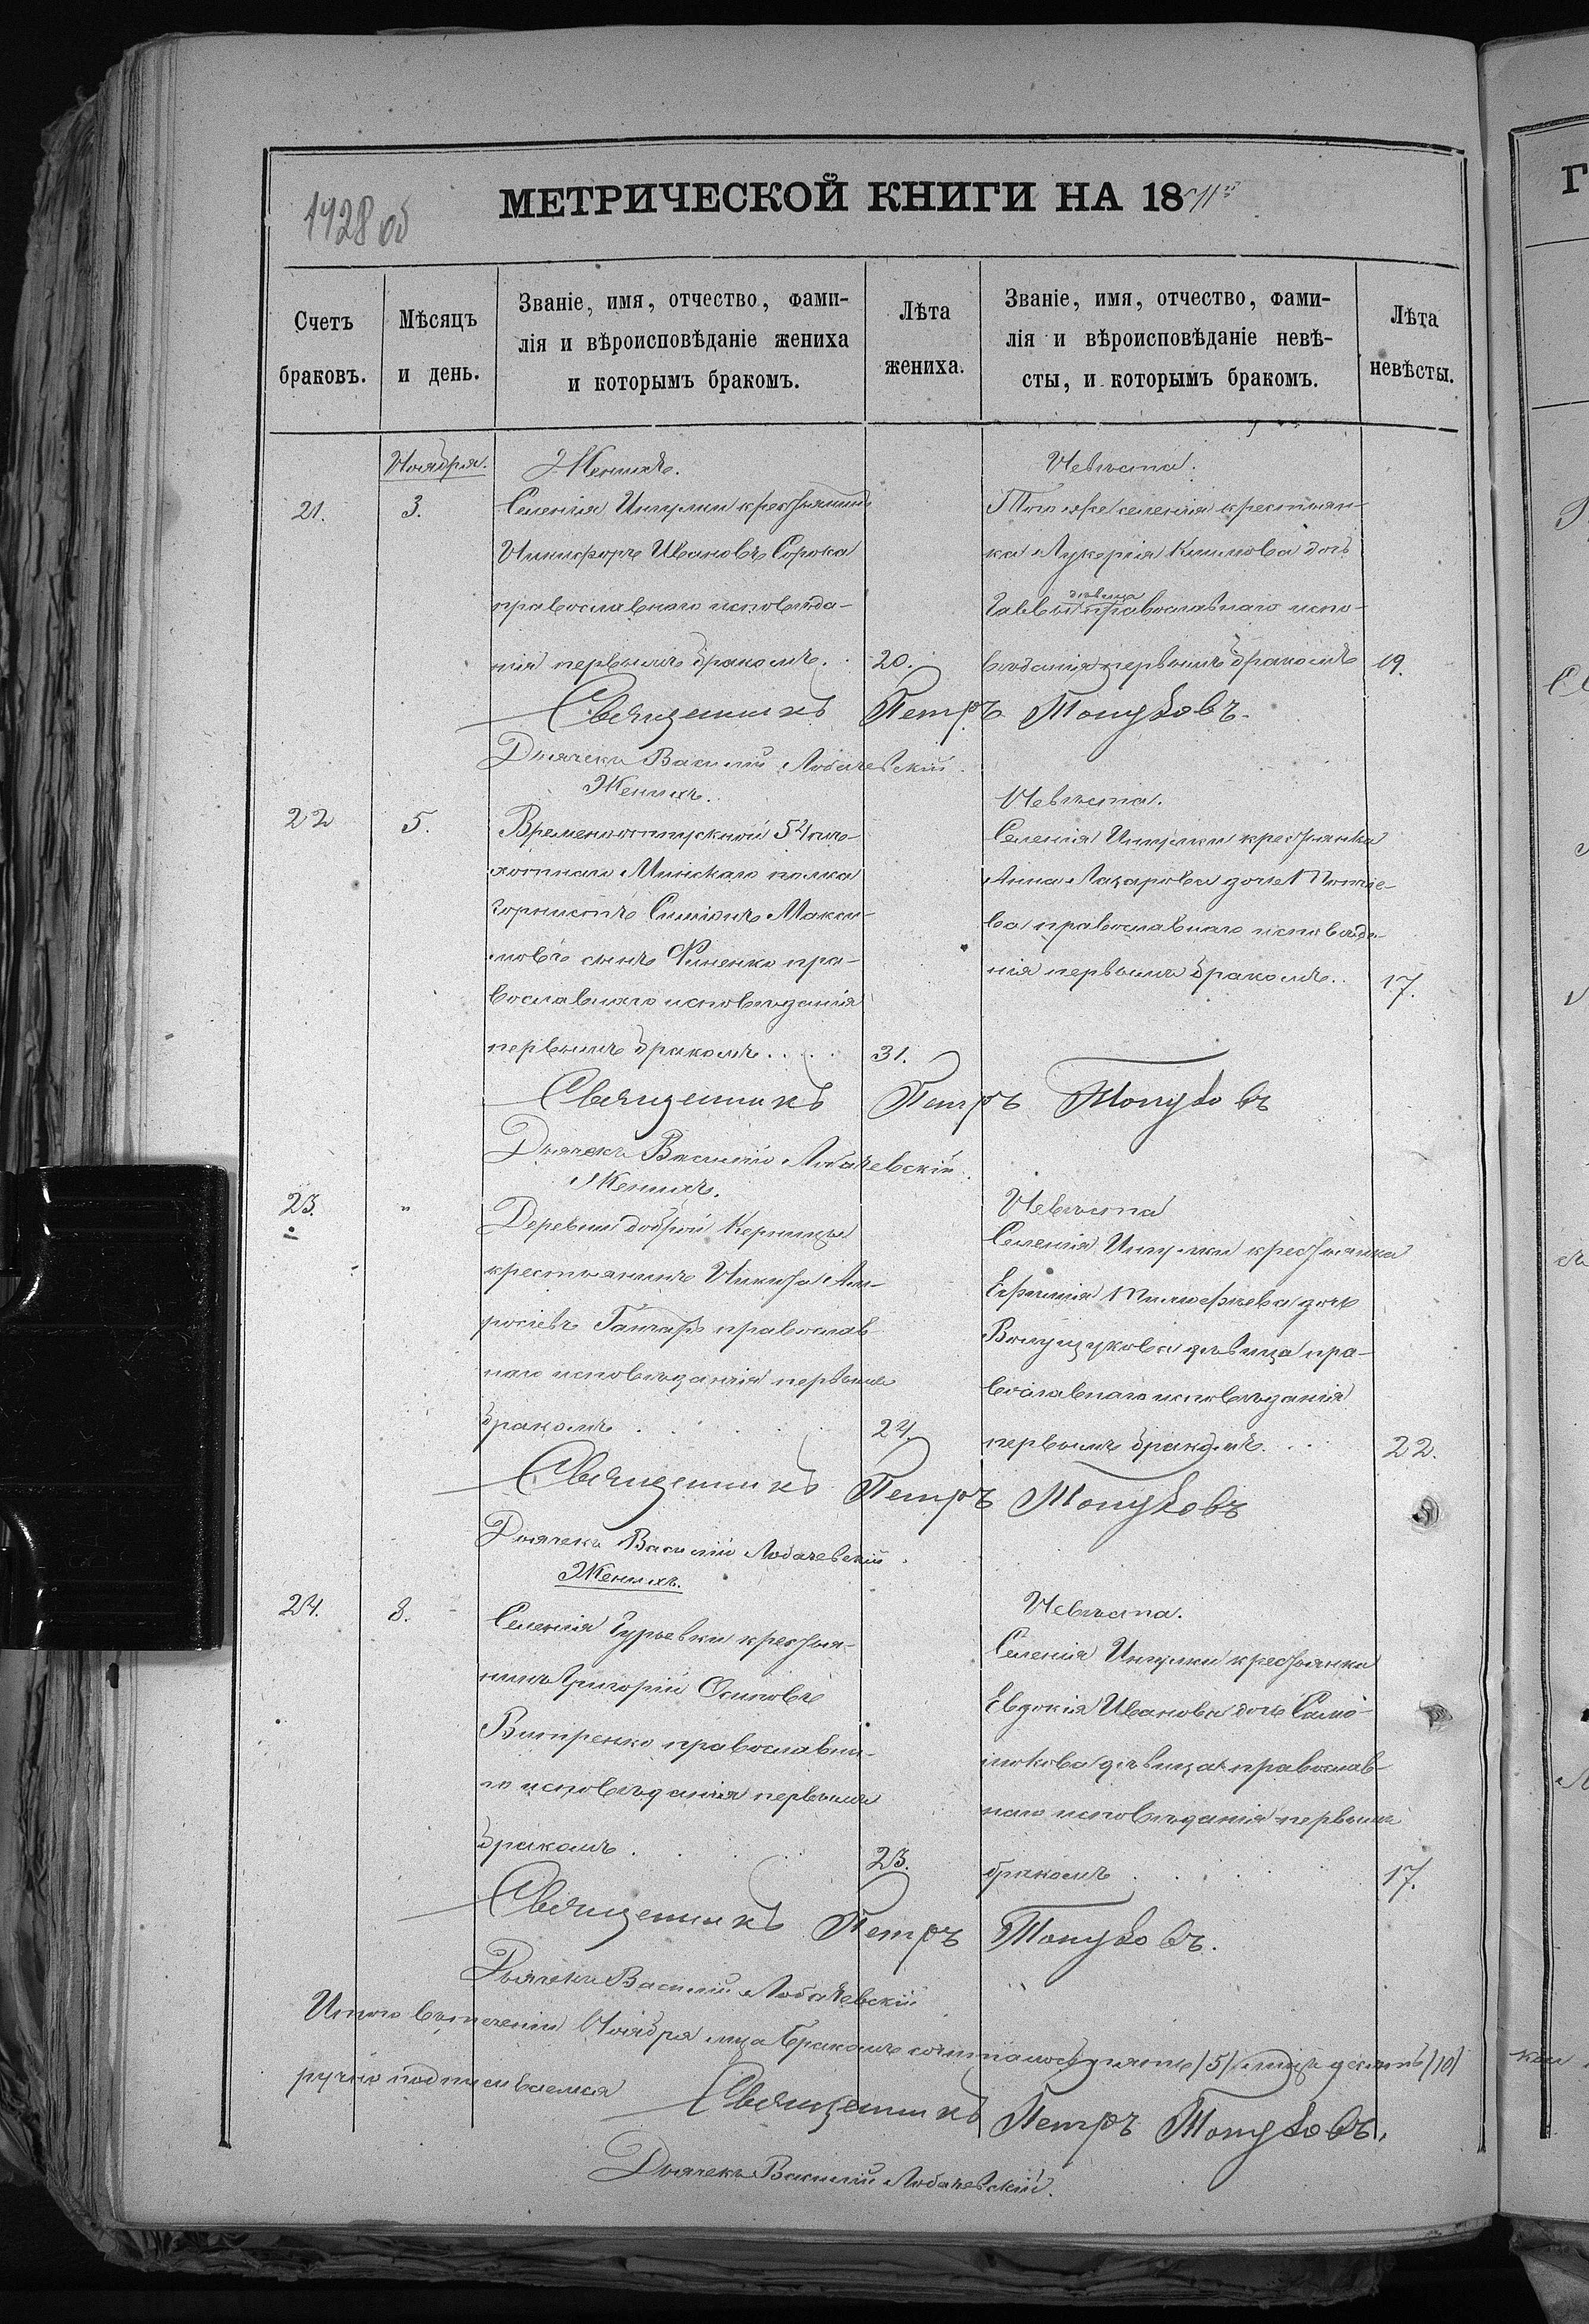 1428 об
МЕТРИЧЕСКОЙ КНИГИ НА 18
Счетъ браковъ.
Мѣсяцъ и день.
Званіе, имя, отчество, фами-
лія и вѣроисповѣданіе жениха
и которымъ бракомъ.
Лѣта жениха.
Званіе, имя, отчество, фами-
лія и вѣроисповѣданіе невѣ-
сты, и которымъ бракомъ.
Лѣта невѣсты.
Ноября.
21.
3.
Женихъ.
Селенія Ингулки крестьянинъ
Никифоръ Ивановъ Сорока
православнаго исповѣда-
нія первымъ бракомъ.
20.
Невѣста.
Того же селенія крестьян-
ка Лукерія Климова дочь
дѣвица
православнаго испо-
вѣданія первымъ бракомъ
19.
Священникъ Петръ
Дьячекъ Василій Лобачевскій
22
5.
Женихъ.
Временоотпускной 54 пѣ-
хотнаго Минскаго полка
горнистъ Симіонъ Макси-
мовъ сынъ Финенко пра-
вославнаго исповѣданія
первымъ бракомъ....
31.
Невѣста.
Селенія Ингулки крестьянка
Анна Лазарева дочь
православнаго исповѣда-
нія первымъ бракомъ..
17.
Священникъ Петръ
Дьячекъ Василій Лобачевскій.
23.
"
Женихъ.
Деревни доброй Керницы
крестьянинъ Никита Ам-
росіевъ Ганчаръ православ-
наго исповѣданія первымъ
бракомъ
24.
Невѣста
Селенія Ингулки крестьянка
Ефимія Тимофѣева дочь
дѣвица пра-
вославнаго исповѣданія
первымъ бракомъ...
22.
Священникъ Петръ
Дьячекъ Василій Лобачевскій.
24.
8.
Женихъ.
Селенія Гурьевки крестья-
нинъ Григорій Осиповъ
Витренко православна-
го исповѣданія первымъ
бракомъ.
23.
Невѣста.
Селенія Ингулки крестьянка
Евдокія Иванова дочь Само-
дѣвица православ-
наго исповѣданія первымъ
бракомъ
17.
Священникъ Петръ
Дьячекъ Василій Лобачевскій
Итого въ теченіи Ноября мца бракомъ сочталось пять (5) лицъ десять (10)
ручно подписываемся
Священникъ Петръ
Дьячекъ Василій Лобачевскій.